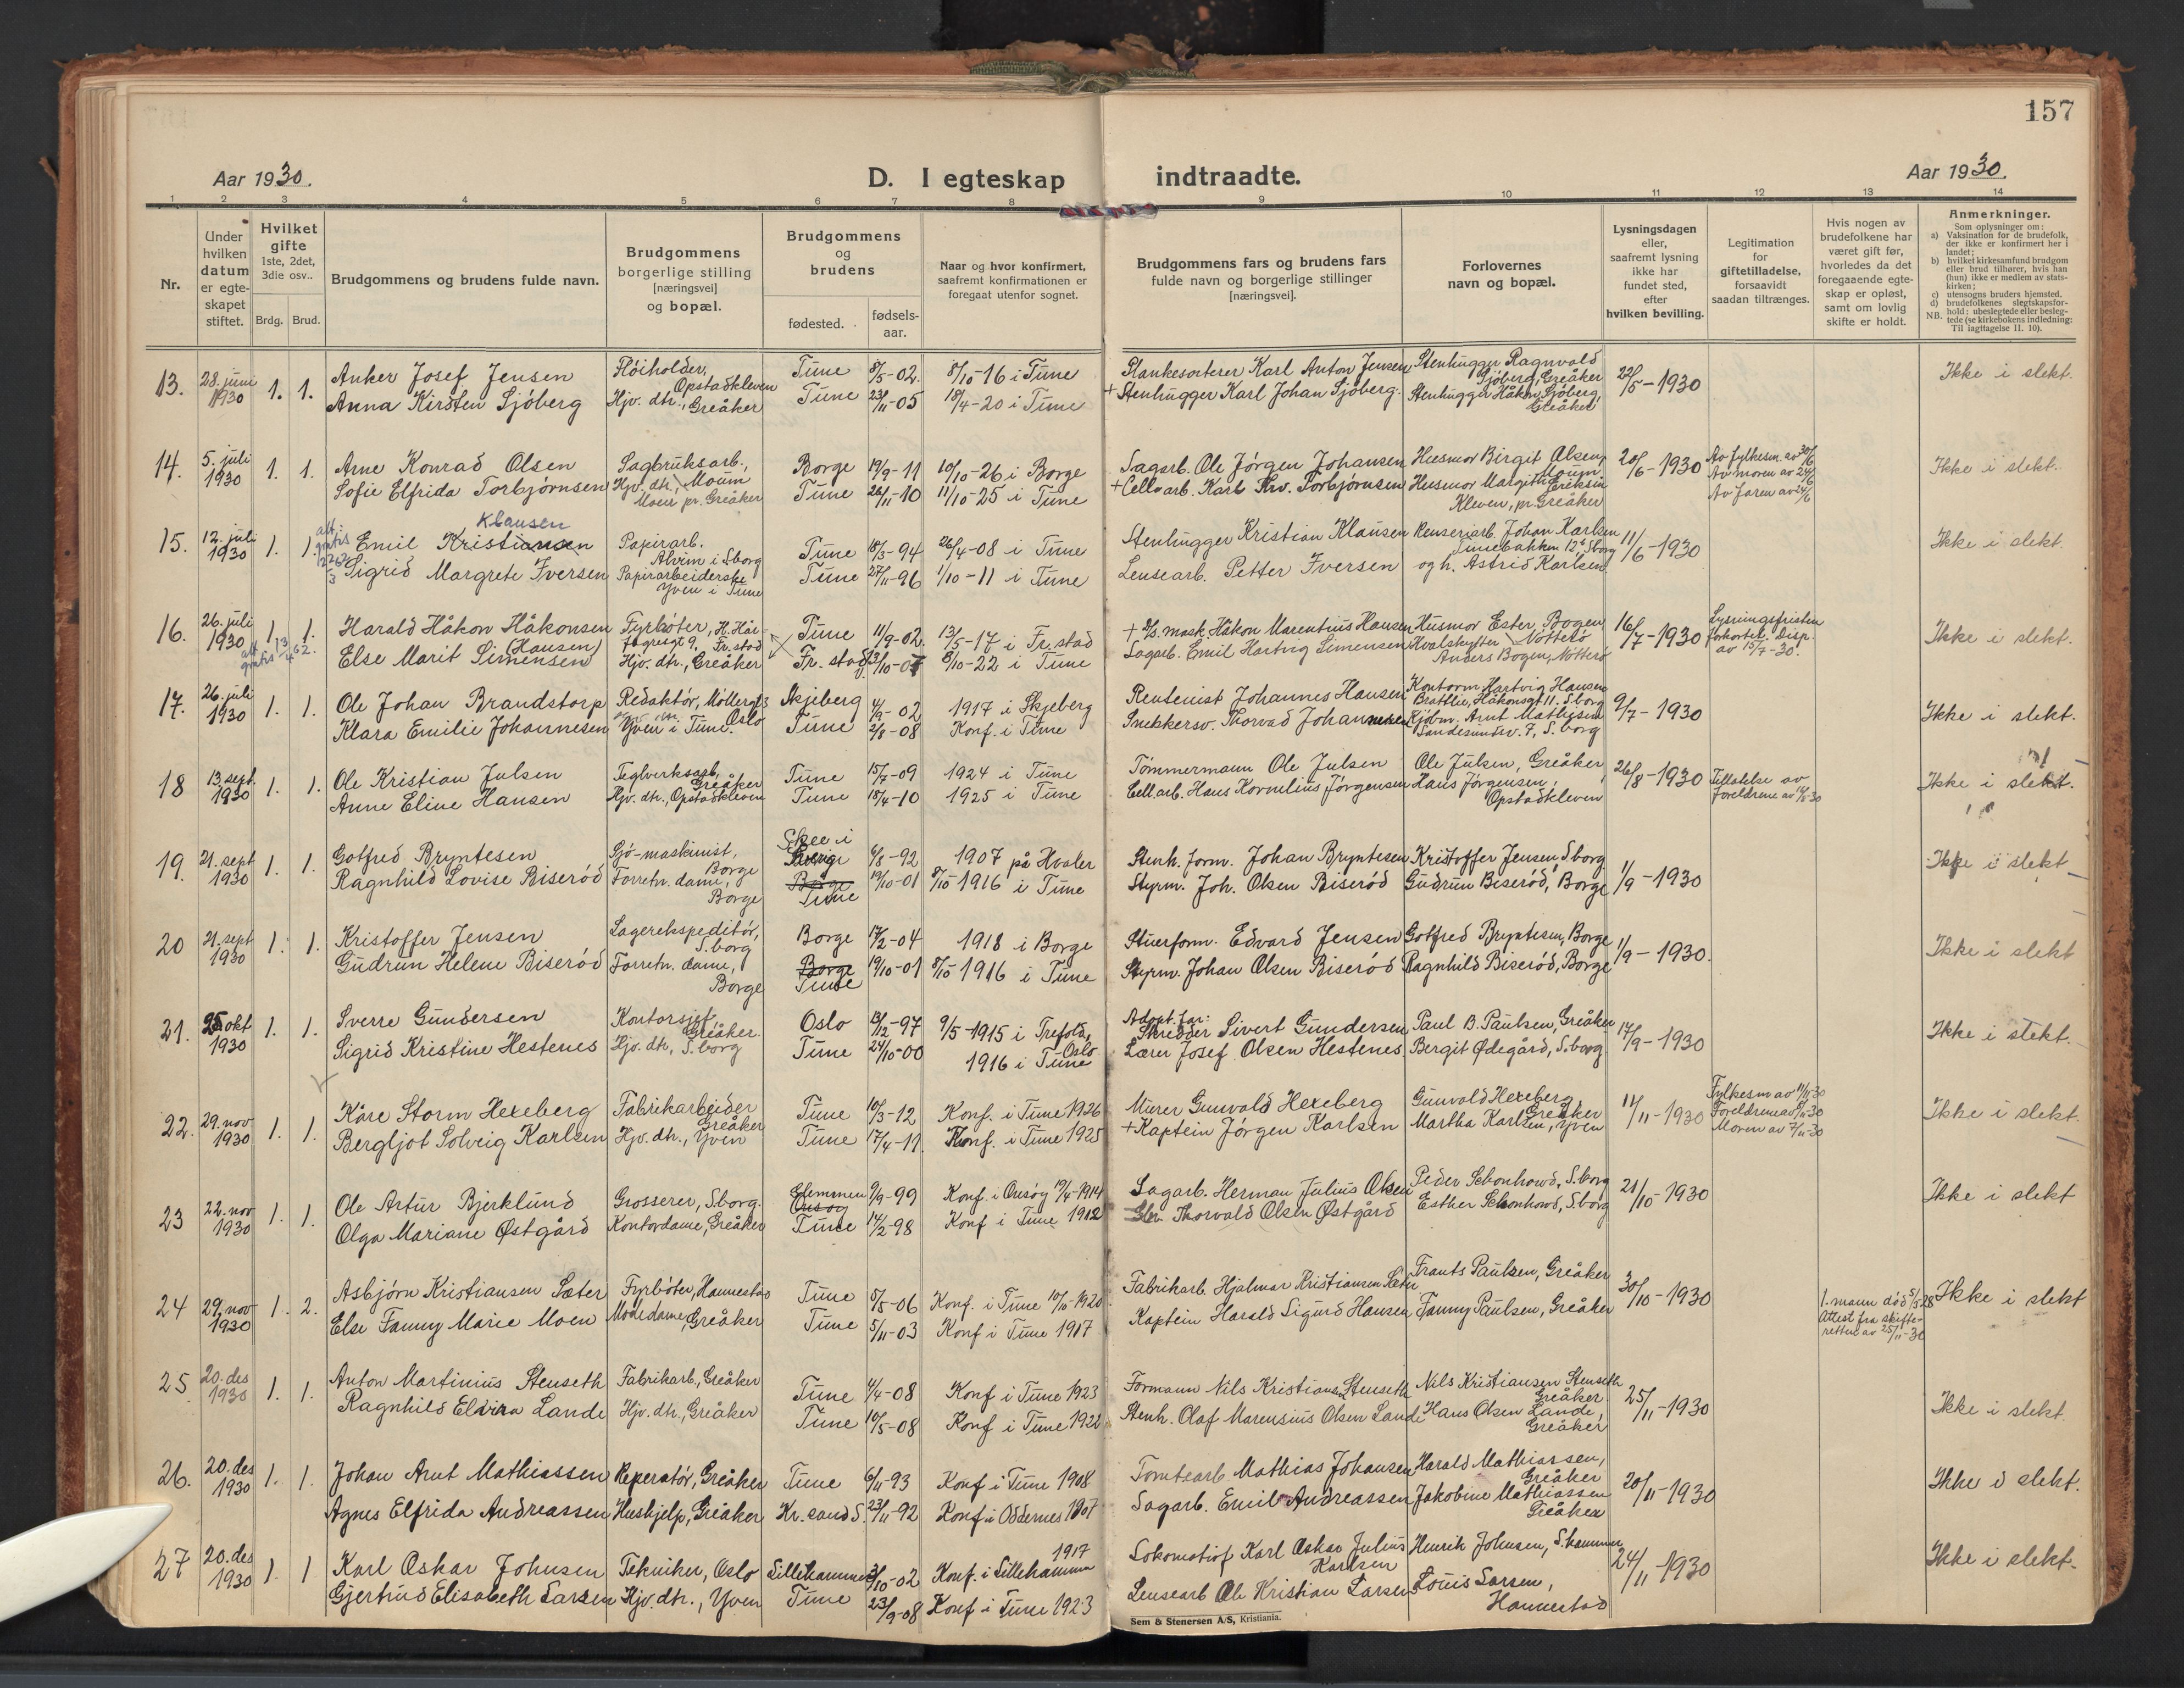 157
Aar 1930.
D. I egteskap indtraadte.
Aar 1930.
1 2 3 4 5 6 7 8 9 10 11 12 13 14
Nr.
Under hvilken datum er egteskapet stiftet.
Hvilket gifte 1ste, 2det, 3die osv..
Brdg. Brud.
Brudgommens og brudens fulde navn.
Brudgommens borgerlige stilling [næringsvei] og bopæl.
Brudgommens og brudens
fødested. fødselsaar.
Naar og hvor konfirmert, saafremt konfirmationen er foregaat utenfor sognet.
Brudgommens fars og brudens fars fulde navn og borgerlige stillinger [næringsvei].
Forlovernes navn og bopæl.
Lysningsdagen eller, saafremt lysning ikke har fundet sted, efter hvilken bevilling.
Legitimation for giftetilladelse, forsaavidt saadan tiltrænges.
Hvis nogen av brudefolkene har været gift før, hvorledes da det foregaaende egteskap er opløst, samt om lovlig skifte er holdt.
Anmerkninger.
Som oplysninger om:
a) Vaksination for de brudefolk, der ikke er konfirmert her i landet;
b) hvilket kirkesamfund brudgom eller brud tilhører, hvis han (hun) ikke er medlem av statskirken;
c) utensogns bruders hjemsted.
d) brudefolkenes slegtskapsforhold: ubeslegtede eller beslegtede (se kirkebokens indledning: Til iagttagelse II. 10).
NB.
13. 28. juni 1930 1. 1. Anker Josef Jensen Høiholder, Opstadkleven Tune 8/5-02. 8/10-16 i Tune Plankesorterer Karl Anton Jensen Stenhugger Ragnvald Sjöberg, Greåker 22/5-1930 Ikke i slekt.
Anna Kirsten Sjöberg Hjv. dtr., Greåker Tune 23/11-05 18/4-20 i Tune + Stenhugger Karl Johan Sjöberg. Stenhugger Håkon Sjöberg, Greåker
14. 5. juli 1930 1. 1. Arne Konrad Olsen Sagbruksarb., Moum Borge 19/9-11 10/10-26 i Borge Sagarb. Ole Jörgen Johansen Husmor Birgit Olsen, Moum 20/6-1930 Av fylkesm. av 30/6 Av moren av 24/6 Av faren av 24/6 Ikke i slekt.
Sofie Elfrida Torbjörnsen Hjv. dtr., Moen pr. Greåker Tune 26/11-10 11/10-25 i Tune + Celloarb. Karl Kr. Torbjörnsen Husmor Margith Eriksen Kleven, pr. Greåker
15. 12. juli 1930 1. 1. Emil Kristiansen Klausen Papirarb. Alvim i S.borg Tune 18/5-94 26/4-08 i Tune Stenhugger Kristian Klausen Renseriarb. Johan Karlsen Tunebakken 12b S.borg 11/6-1930 Ikke i slekt.
Sigrid Margrete Iversen Papirarbeiderske Yven i Tune Tune 27/11-96 1/10-11 i Tune Lensearb. Petter Iversen og h. Astrid Karlsen
16. 26. juli 1930 1. 1. Harald Håkon Håkonsen (Hansen) Fyrböter, H. Hårfagresgt 9, Fr.stad Tune 11/9-02. 13/5-17 i Fr.stad + D/s. mask. Håkon Marentius Hansen Husmor Ester Bogen, Nötterö 16/7-1930 Lysningsfristen forkortet. Disp. av 15/7-30. Ikke i slekt.
Else Marit Simensen Hjv. dtr., Greåker Fr.stad 8/10-22 i Tune Sagarb. Emil Hartvig Simensen Hvalskytter Anders Bogen, Nötterö
17. 26. juli 1930 1. 1. Ole Johan Brandstorp Redaktör, Möllergt. Oslo Skjeberg 4/9-02 1917 i Skjeberg Rentenist Johannes Hansen Kontorm. Hartvig Hansen Brattlie, Håkonsgt 11. S.borg 9/7-1930 Ikke i slekt.
Klara Emilie Johannesen Yven i Tune. Tune 2/6-08 Konf. i Tune Snekkersv. Thorvad Johannesen Kjöbm. Arnt Mathisen Sandesundsv. 7, S.borg
18 13. sept. 1930 1. 1. Ole Kristian Julsen Teglverksarb, Greåker Tune 15/7-09 1924 i Tune Tömmermann Ole Julsen Ole Julsen, Greåker, 26/8-1930 Tillatelse av foreldrene av Ikke i slekt.
Anne Eline Hansen Hjv. dtr., Opstadkleven Tune 18/4-10 1925 i Tune Cell.arb. Hans Kornelius Jörgensen Hans Jörgensen, Opstadkleven
19. 21. sept 1930 1. 1. Gotfred Bryntesen Sjö-maskinist, Borge Skee i Sverige 6/8-92 1907 på Hvaler Stenh. form. Johan Bryntesen Kristoffer Jensen, S.borg 1/9-1930 Ikke i slekt
Ragnhild Lovise Biseröd Forretn. dame, Borge Borge Tune 19/10-01 8/10 1916 i Tune Styrm. Joh. Olsen Biseröd Gudrun Biseröd, Borge
20 21. sept 1930 1. 1. Kristoffer Jensen Lagerekspeditör, S.borg Borge 17/2-04 1918 i Borge Stuerform. Edvard Jensen Gotfred Bryntesen, Borge 1/9-1930. Ikke i slekt
Gudrun Helene Biseröd Forretn. dame, Borge Borge Tune 19/10-01 8/10 1916 i Tune Styrm. Johan Olsen Biseröd Ragnhild Biseröd, Borge
21. 25 okt 1930 1. 1. Sverre Gundersen Kontorsjef, Greåker. Oslo 13/12-97 9/5-1915 i Trefold, Oslo Adopt. far: Skredder Sivert Gundersen Paul B. Paulsen, Greåker 17/9-1930 Ikke i slekt.
Sigrid Kristine Hestenes Hjv. dtr, S.borg Tune 24/10-00 1916 i Tune Lærer Josef Olsen Hestenes Bergit Ødegård, S.borg.
22. 29. nov 1930 1. 1. Kåre Storm Hexeberg Fabrikarbeider Greåker Tune 10/3-12 Konf. i Tune 1926 Murer Gunvald Hexeberg Gunvald Hexeberg, Greåker 11/11-1930 Fylkesm av 11/11-30 Foreldrene av 7/11-30 Moren av 7/11-30 Ikke i slekt.
Bergljot Solveig Karlsen Hjv. dtr., Yven Tune 17/4-11. Konf. i Tune 1925 + Kaptein Jörgen Karlsen Martha Karlsen, Yven
23 22. nov 1930 1. 1. Ole Artur Bjerklund Grosserer, S.borg. Glemmen Onsöy 9/9-99 Konf. i Onsöy 19/4-1914 Sagarb. Herman Julius Olsen Peder Schonhowd, S.borg 21/10-1930 Ikke i slekt
Olga Mariane Østgård Kontordame, Greåker Tune 14/2-98 Konf i Tune 1912 Thorvald Olsen Østgård Esther Schonhowd, S.borg
24 29. nov 1930 1. 2. Asbjörn Kristiansen Sæter Fyrböter, Hannestad Tune 8/5-06 Konf. i Tune 10/10-1920 Fabrikarb. Hjalmar Kristiansen Sæter Frants Paulsen, Greåker 30/10-1930 1. mann död 5/5-28 Attest fra skifteretten av 25/11-30 Ikke i slekt
Else Fanny Marie Moen Motedame, Greåker Tune 5/11-03 Konf i Tune 1917 Kaptein Harald Sigurd Hansen Fanny Paulsen, Greåker
25 20. des 1930 1. 1. Anton Martinius Stenseth Fabrikarb., Greåker Tune 4/4-08 Konf i Tune 1923 Formann Nils Kristiansen Stenseth Nils Kristiansen Stenseth Greåker 25/11-1930 Ikke i slekt.
Ragnhild Elvira Lande Hjv. dtr., Greåker Tune 10/5-08 Konf i Tune 1922 Stenh. Olaf Marensius Olsen Lande Hans Olsen Lande, Greåker
26. 20. des 1930 1. 1. Johan Arnt Mathiassen Reperatör, Greåker Tune 6/11-93 Konf i Tune 1908 Tomtearb Mathias Johansen Harald Mathiassen, Greåker 20/11-1930 Ikke i slekt.
Agnes Elfrida Andreassen Hushjelp, Greåker Kr.sand S. 23/11-92 Konf i Oddernes 1907 Sagarb. Emil Andreassen Jakobine Mathiassen Greåker
27 20. des 1930 1. 1 Karl Oskar Johnsen Tekniker, Oslo Lillehammer 3/10-02 Konf. i Lillehammer 1917 Lokomotivf Karl Oskar Julius Karlsen Henrik Johnsen, S.hammer 24/11-1930 Ikke i slekt.
Gjertrud Elisabeth Larsen Hjv. dtr., Yven Tune 23/9-08 Konf i Tune 1923 Lensearb Ole Kristian Larsen Louis Larsen, Hannestad
Sem & Stenersen A/S, Kristiania.